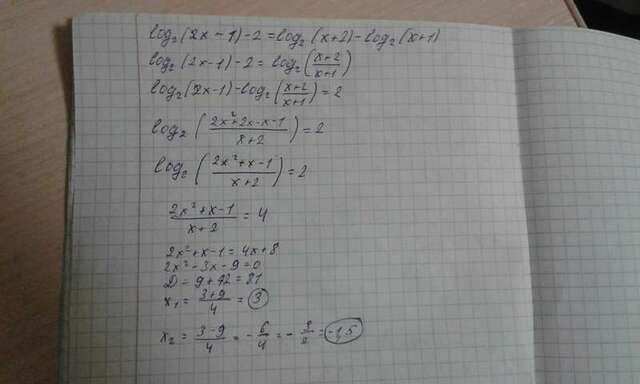 log₂(2x-1)-2=log₂(x+2)-log₂(x+1)
log₂(2x-1)-2=log₂((x+2)/(x+1))
log₂(2x-1)-log₂((x+2)/(x+1))=2
log₂((2x²+2x-x-1)/(x+2))=2
log₂((2x²+x-1)/(x+2))=2
(2x²+x-1)/(x+2)=4
2x²+x-1=4x+8
2x²-3x-9=0
D=9+72=81
x₁=(3+9)/4=3
x₂=(3-9)/4=-6/4=-3/2=-1,5